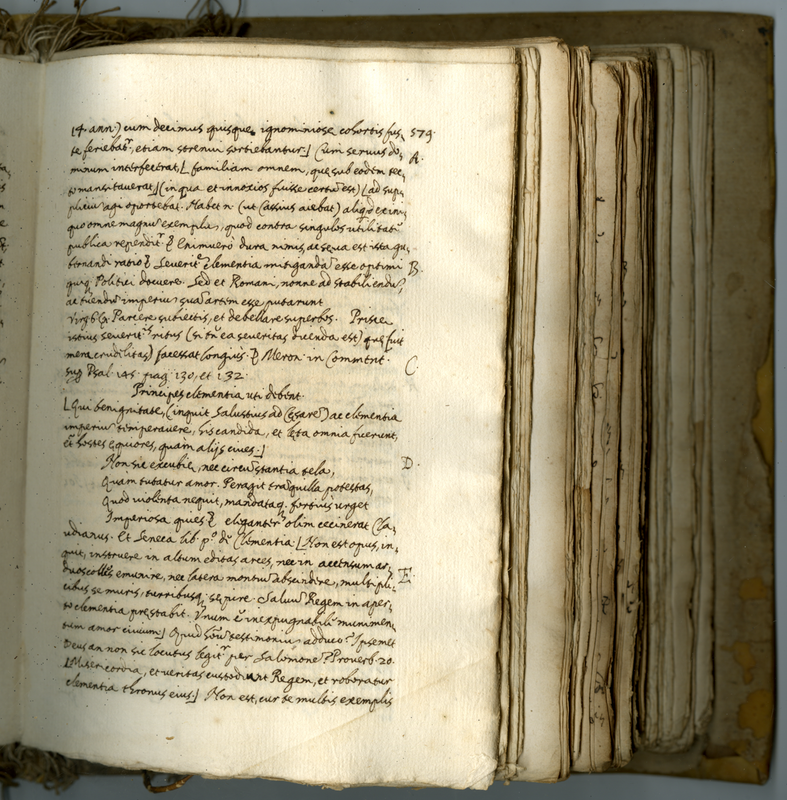 14. ann.) cum decimus quisque, ignominiose cohortis fus, 579.
te feriebat^r, etiam strenui sortiebantur.] Cum servus do, A.
minum interfecerat, [familiam omnem, quę sub eodem tec,
to mansitaverat,] (in qua et innoxios fuisse certũ est) [ad sup,
pliciũ agi oportebat. Habet n. (ut Cassius aiebat) aliqd ex ini,
quo omne magnũ exemplũ, quod contra singulos utilitatẽ
publica rependit^r. Enimuero dura nimis, ac sęva est ista gu,
bernandi ratio Severit^e Clementia mitigandã esse optimi B.
quiq Politici docuere. Sed et Romani, nonne ad stabiliendũ,
ac tuendũ imperiũ suã artem esse putarunt
Parcere subiectis, et debellare superbos. Prisci
istius severit^is ritus (si tñ ea severitas dicenda est) quę fuit
mera crudelitas) facessat longius. Meron: in Comment. C.
sup Psal. 145. pag. 130, et 132.
Principes clementia uti debent.
[Qui benignitate, (inquit Salustius ad Cęsarẽ) ac clementia
imperiũ temperavere, his candida, et lęta omnia fuerunt,
et hostes ęquiores, quam alijs cives.]
Non sic excubię, nec circũstantia tela, D.
Quam tutatur amor. Peragit trãquilla potestas,
Quod violenta nequit, mandataq. fortius urget
Imperiosa quies eleganter olim cecinerat Cla,
udianus. Et Seneca lib. p^o de Clementia: [Non est opus, in,
quit, instruere in altum editas arces, nec in accensum ar,
duos colles emunire, nec latera montiũ abscindere, multipli, E.
cibus se muris, turribusq; sepire. Salvũ Regem in aper,
to clementia pręstabit. Unum ẽ inexpugnabile munimen,
tum amor civium.] Quid testimoniũ adduco? Ipsemet
Deus an non sic locutus legit^r per Salomonẽ? Proverb. 20.
[Misericordia, et veritas custodiunt Regem, et roboratur
clementia thronus eius.] Non est, cur te multis exemplis